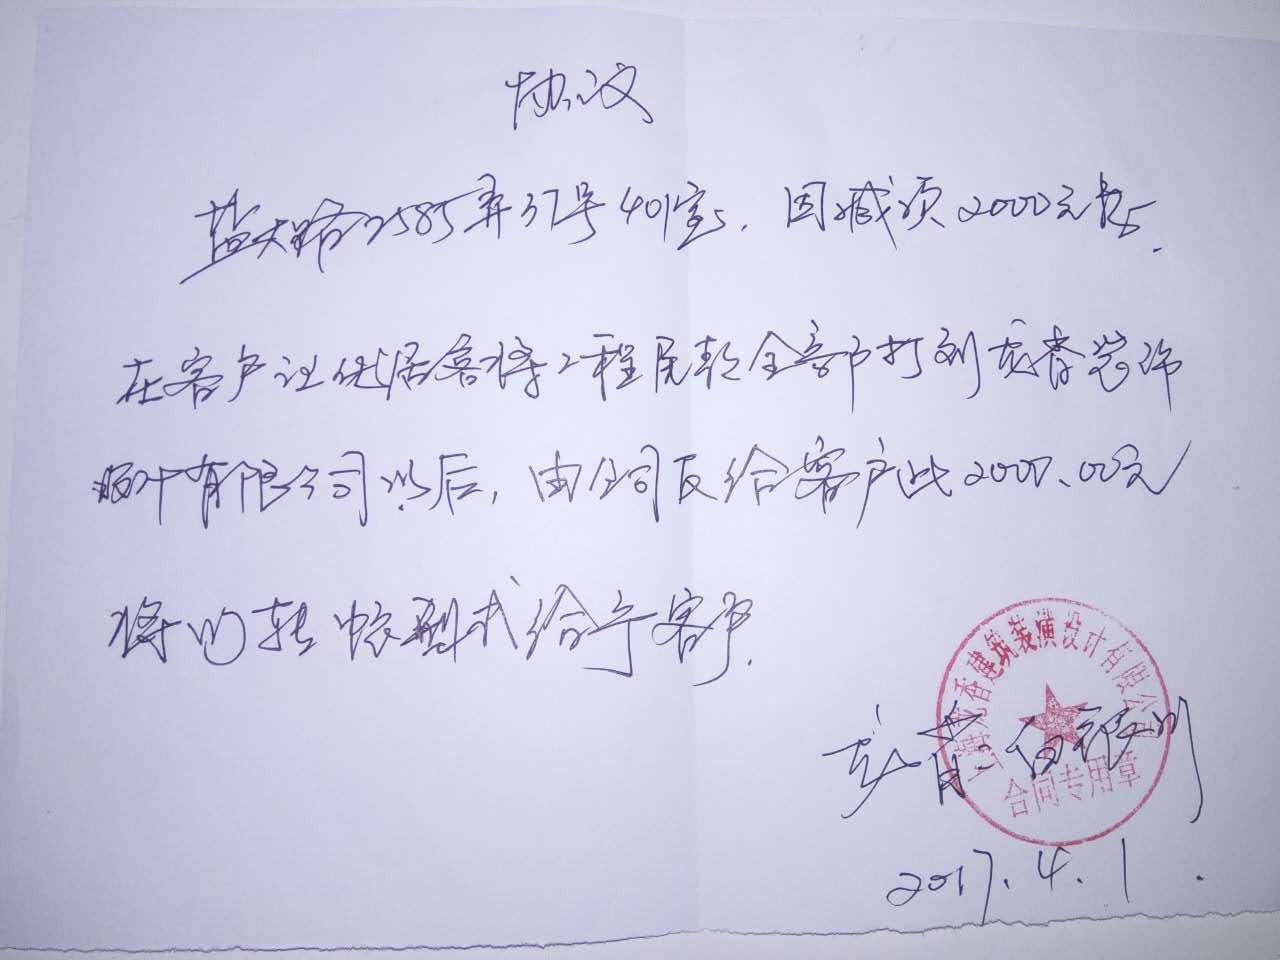 协议
盐大路2585弄37号401室, 因减项2000元整.
在客户让优居客将工程尾款全部打到龙香装饰
设计有限公司以后, 由公司反给客户此2000.00元
将以转帐型式给予客户.
龙香建筑装潢设计有限公司
合同专用章
龙青: 白银川
2017.4.1.